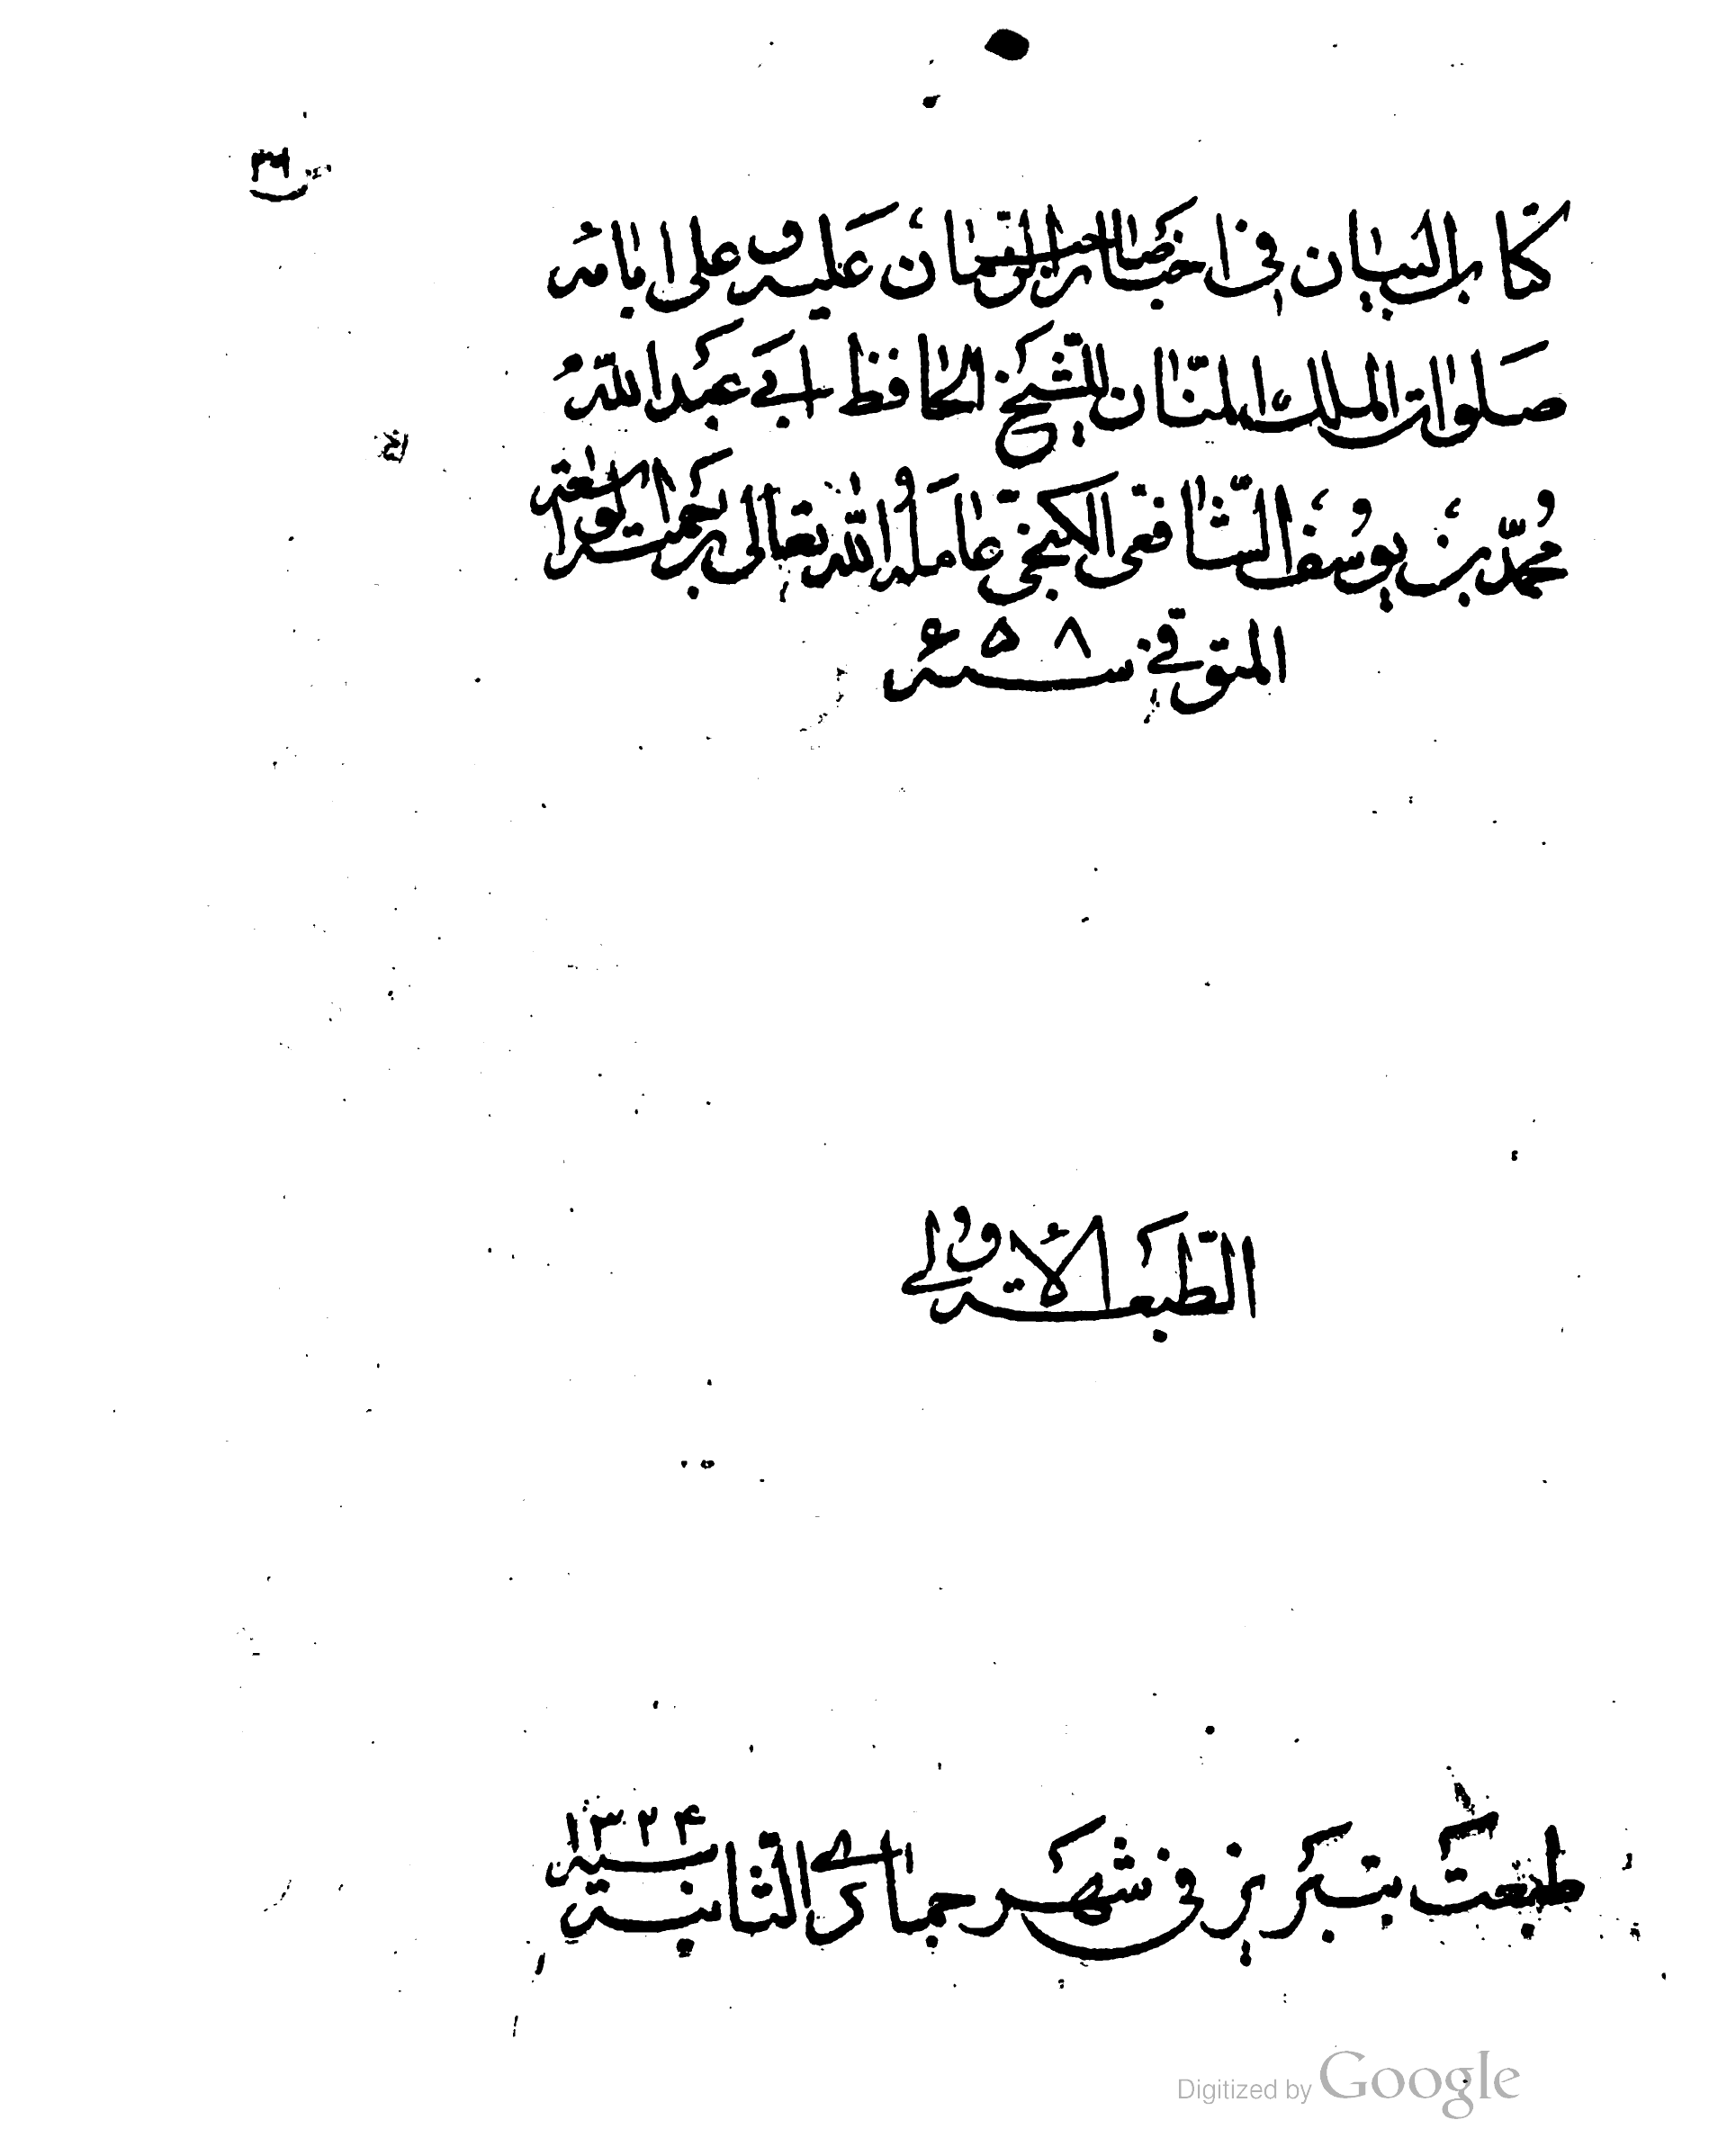 ٣١
كتاب البيان في اخبار صاحب الزمان عليه وعلى ابائه
صلوات الملك المنان للشيخ الحافظ ابي عبد الله
محمد بن يوسف الشافعى الكنجى عامله الله تعالى برحمته الواسعة
المتوفى سنة ٦٥٨
الطبعة الاولى
طبعت بتبريز فى شهر جمادى الثانية سنة ١٣٢۴
Digitized by Google